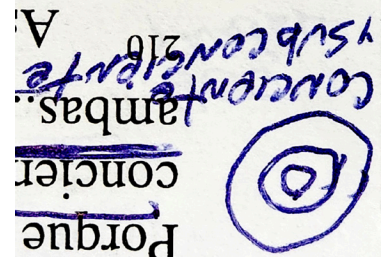 Porque
concien
ambas..
CONCIENTE
Y SUBCONCIENTE